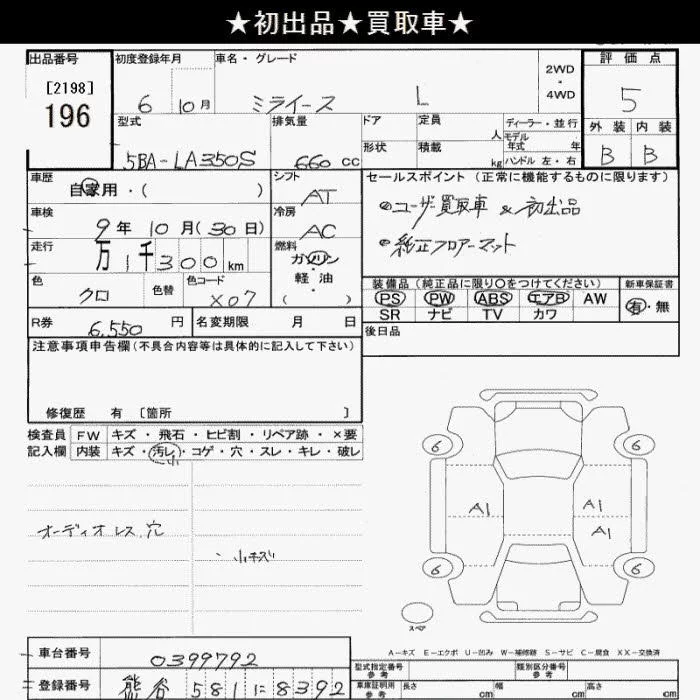 ★初出品★買取車★
出品番号
[2198]
196
初度登録年月
6 10月
車名・グレード
ミライース L
2WD
・
4WD
評価点
5
外装 内装
B B
型式
5BA-LA350S
排気量
660 cc
ドア
形状
定員
人
積載
kg
ディーラー・並行
モデル
年式 年
ハンドル 左・右
車歴
自家用・( )
シフト
AT
車検
9年10月(30日)
冷房
AC
走行
万1千300km
燃料
ガソリン
軽油
( )
色
クロ
色替
色コード
X07
R券
6,550円
名変期限 月 日
セールスポイント (正常に機能するものに限ります)
・ユーザー買取車 & 初出品
・純正フロアーマット
装備品(純正品に限り○をつけてください)
PS PW ABS エアB AW
SR ナビ TV カワ
新車保証書
有・無
後日品
注意事項申告欄(不具合内容等は具体的に記入して下さい)
修復歴 有 [箇所 ]
検査員 FW キズ・飛石・ヒビ割・リペア跡・×要
記入欄 内装 キズ・汚レ・コゲ・穴・スレ・キレ・破レ
小
オーディオレス穴
・小キズ
6 6
A1 A1
A1
6 6
スペア
A-キズ E-エクボ U-凹み W-補修跡 S-サビ C-腐食 XX-交換済
車台番号
0399792
登録番号
熊谷 581に8392
型式指定番号
参考
類別区分番号
参考
車庫証明用
参考
長さ cm
幅 cm
高さ cm